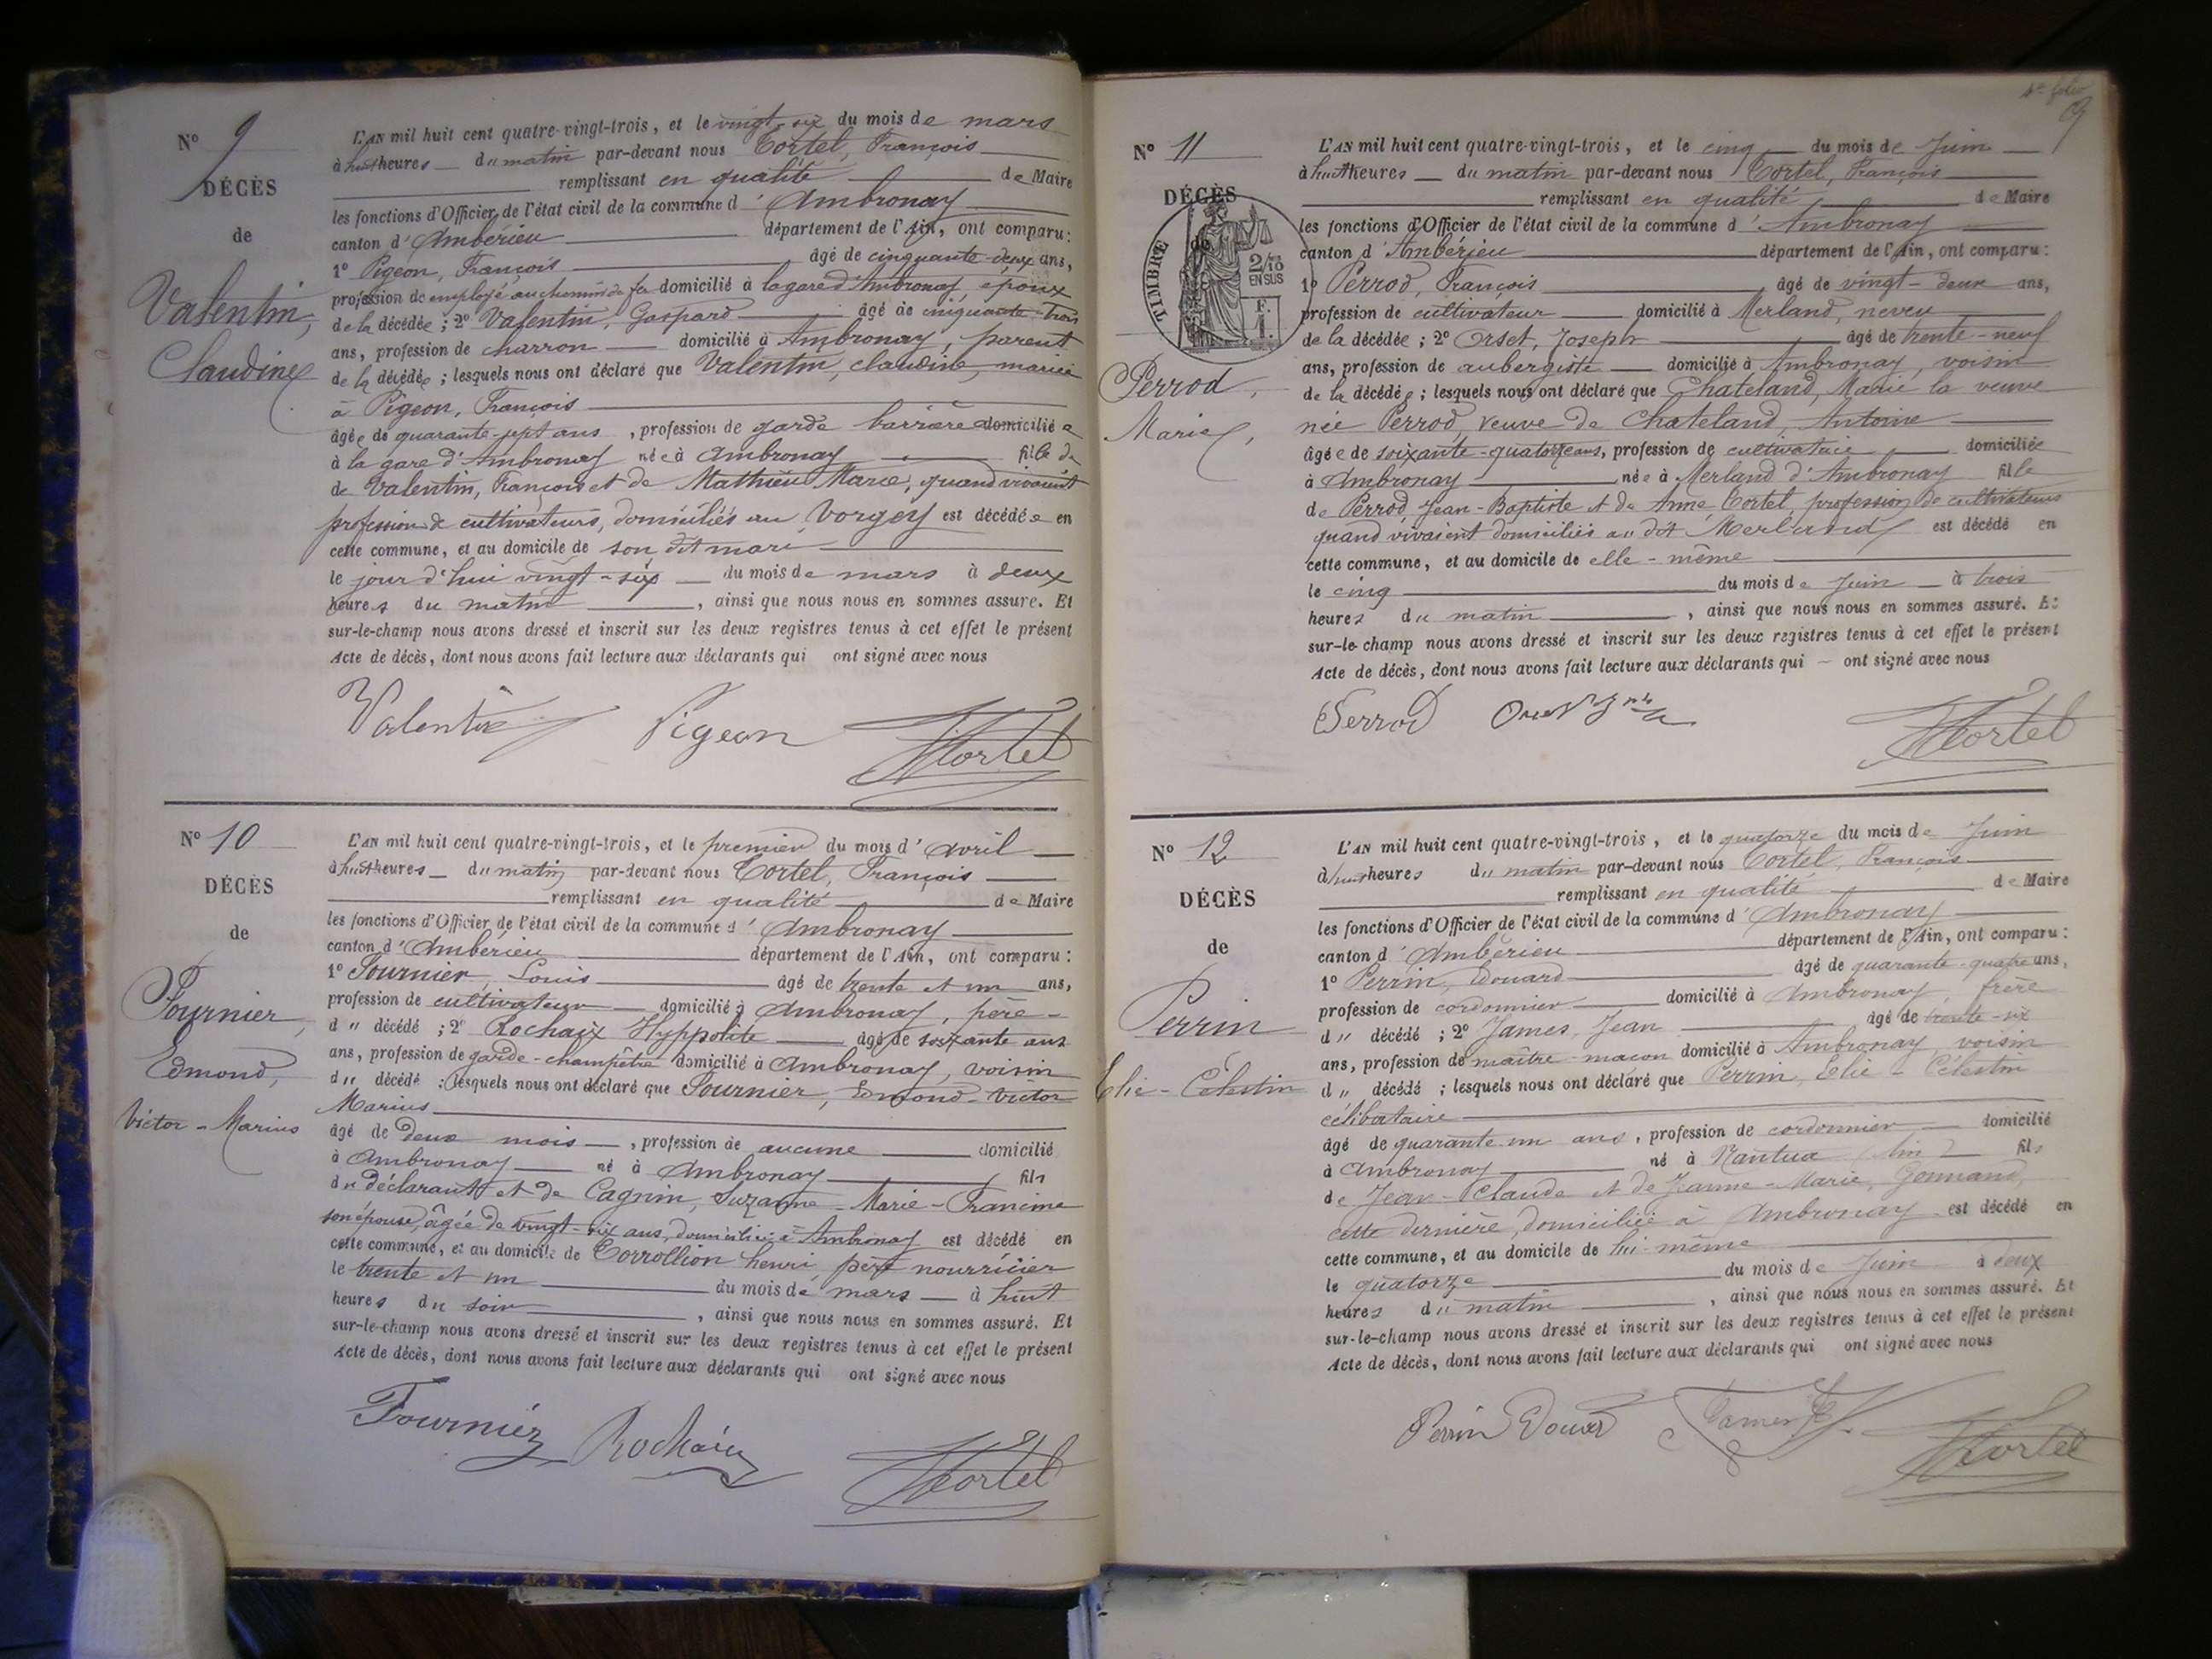 Nº 9
DÉCÈS
de
Valentin,
Claudine
L'AN mil huit cent quatre-vingt-trois, et le vingt-six du mois de mars
à huit heures du matin par-devant nous Cortel, François
remplissant en qualité de Maire
les fonctions d'Officier de l'état civil de la commune d'Ambronay
canton d'Ambérieu département de l'Ain, ont comparu:
1º Pigeon, François âgé de cinquante-deux ans,
profession de employé au chemin de fer domicilié à la gare d'Ambronay époux
de la décédée; 2º Valentin, Gaspard âgé de cinquante-trois
ans, profession de charron domicilié à Ambronay, parent
de la décédée; lesquels nous ont déclaré que Valentin, claudine, mariée
à Pigeon, François
âgée de quarante-sept ans, profession de garde barrière domiciliée
à la gare d'Ambronay née à Ambronay fille de
de Valentin, François et de Mathieu Marie, quand vivaient
profession de cultivateurs, domiciliés au Vorgey est décédée en
cette commune, et au domicile de son dit mari
le jour d'hui vingt-six du mois de mars à deux
heures du matin, ainsi que nous nous en sommes assuré. Et
sur-le-champ nous avons dressé et inscrit sur les deux registres tenus à cet effet le présent
Acte de décès, dont nous avons fait lecture aux déclarants qui ont signé avec nous
Valentin Pigeon Cortel
Nº 10
DÉCÈS
de
Fournier,
Edmond,
Victor-Marius
L'AN mil huit cent quatre-vingt-trois, et le premier du mois d'avril
à huit heures du matin par-devant nous Cortel, François
remplissant en qualité de Maire
les fonctions d'Officier de l'état civil de la commune d'Ambronay
canton d'Ambérieu département de l'Ain, ont comparu:
1º Fournier, Louis âgé de trente et un ans,
profession de cultivateur domicilié à Ambronay, père
du décédé; 2º Rochaix Hyppolite âgé de soixante ans
ans, profession de garde-champêtre domicilié à Ambronay, voisin
du décédé; lesquels nous ont déclaré que Fournier, Edmond-Victor
Marius
âgé de deux mois, profession de aucune domicilié
à Ambronay né à Ambronay fils
du déclarant et de Cagnin, Suzanne-Marie-Francine
son épouse, âgée de vingt-six ans, domiciliée à Ambronay est décédé en
cette commune, et au domicile de Corrollion henri, père nourricier
le trente et un du mois de mars à huit
heures du soir, ainsi que nous nous en sommes assuré. Et
sur-le-champ nous avons dressé et inscrit sur les deux registres tenus à cet effet le présent
Acte de décès, dont nous avons fait lecture aux déclarants qui ont signé avec nous
Fournier Rochaix Cortel
Nº 11
DÉCÈS
de
TIMBRE
2/10
EN SUS
F.
1.
Perrod,
Marie,
L'AN mil huit cent quatre-vingt-trois, et le cinq du mois de Juin
à huit heures du matin par-devant nous Cortel, François
remplissant en qualité de Maire
les fonctions d'Officier de l'état civil de la commune d'Ambronay
canton d'Ambérieu département de l'Ain, ont comparu:
1º Perrod, François âgé de vingt-deux ans,
profession de cultivateur domicilié à Merland, neveu
de la décédée; 2º Orset, Joseph âgé de trente-neuf
ans, profession de aubergiste domicilié à Ambronay, voisin
de la décédée; lesquels nous ont déclaré que Chateland, Marie la veuve
née Perrod, veuve de Chateland, Antoine
âgée de soixante-quatorze ans, profession de cultivatrice domiciliée
à Ambronay née à Merland d'Ambronay fille
de Perrod, Jean-Baptiste et de Anne Cortel, profession de cultivateurs
quand vivaient domiciliés au dit Merland est décédé en
cette commune, et au domicile de elle-même
le cinq du mois de Juin à trois
heures du matin, ainsi que nous nous en sommes assuré. Et
sur-le-champ nous avons dressé et inscrit sur les deux registres tenus à cet effet le présent
Acte de décès, dont nous avons fait lecture aux déclarants qui ont signé avec nous
Perrod Cortel
Nº 12
DÉCÈS
de
Perrin
Elie-Célestin
L'AN mil huit cent quatre-vingt-trois, et le quatorze du mois de Juin
à huit heures du matin par-devant nous Cortel, François
remplissant en qualité de Maire
les fonctions d'Officier de l'état civil de la commune d'Ambronay
canton d'Ambérieu département de l'Ain, ont comparu:
1º Perrin, Edouard âgé de quarante-quatre ans,
profession de cordonnier domicilié à Ambronay, frère
du décédé; 2º James, Jean âgé de trente-six
ans, profession de maître-maçon domicilié à Ambronay, voisin
du décédé; lesquels nous ont déclaré que Perrin, Elie-Célestin
célibataire
âgé de quarante-un ans, profession de cordonnier domicilié
à Ambronay né à Nantua (Ain) fils
de Jean-Claude et de Jeanne-Marie, Gonnand,
cette dernière, domiciliée à Ambronay est décédé en
cette commune, et au domicile de lui-même
le quatorze du mois de Juin à deux
heures du matin, ainsi que nous nous en sommes assuré. Et
sur-le-champ nous avons dressé et inscrit sur les deux registres tenus à cet effet le présent
Acte de décès, dont nous avons fait lecture aux déclarants qui ont signé avec nous
Perrin Cortel